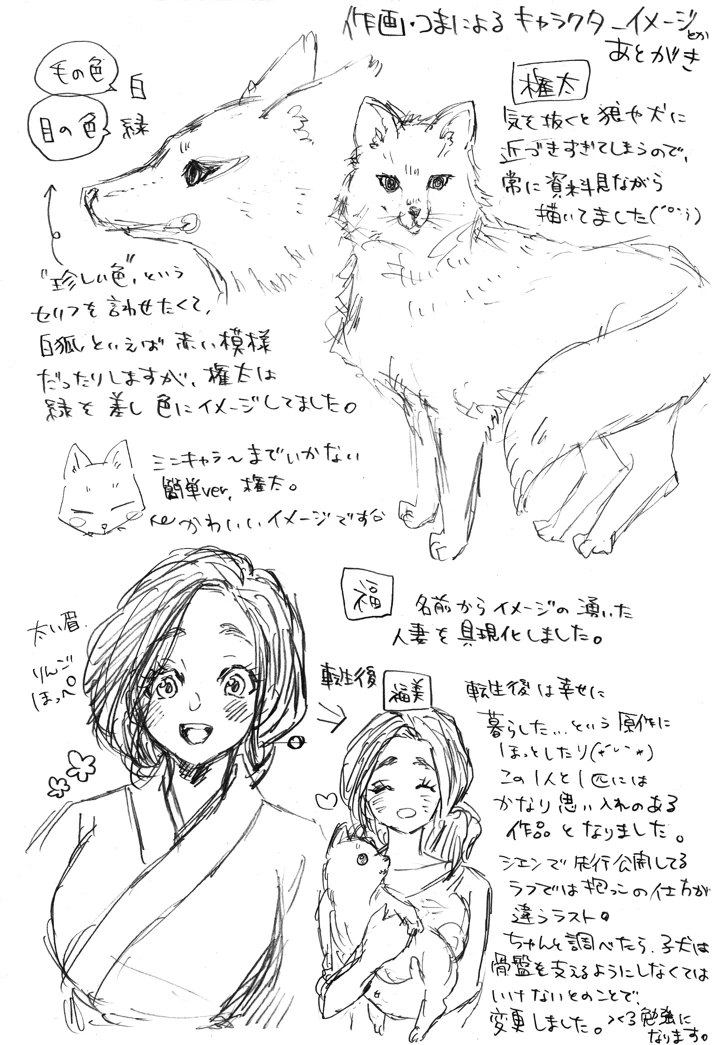 作画・つまによる キャラクターイメージとか
あとがき
毛の色 白
目の色 緑
権太
気を抜くと狼や犬に
近づきすぎてしまうので、
常に資料見ながら
描いてました
"珍しい色"という
セリフを言わせたくて、
白狐といえば赤い模様
だったりしますが、権太は
緑を差し色にイメージしてました。
ミニキャラ〜までいかない
簡単ver. 権太。
かわいいイメージです
福
名前からイメージの湧いた
人妻を具現化しました。
太い眉
りんご
ほっぺ
転生後
福美
転生後は幸せに
暮らした…という原作に
ほっとしたり
この1人と1匹には
かなり思い入れのある
作品となりました。
シエンで先行公開してる
ラフでは抱っこの仕方が
違うラスト。
ちゃんと調べたら、子犬は
骨盤を支えるようにしなくては
いけないとのことで、
変更しました。つくる勉強に
なります。